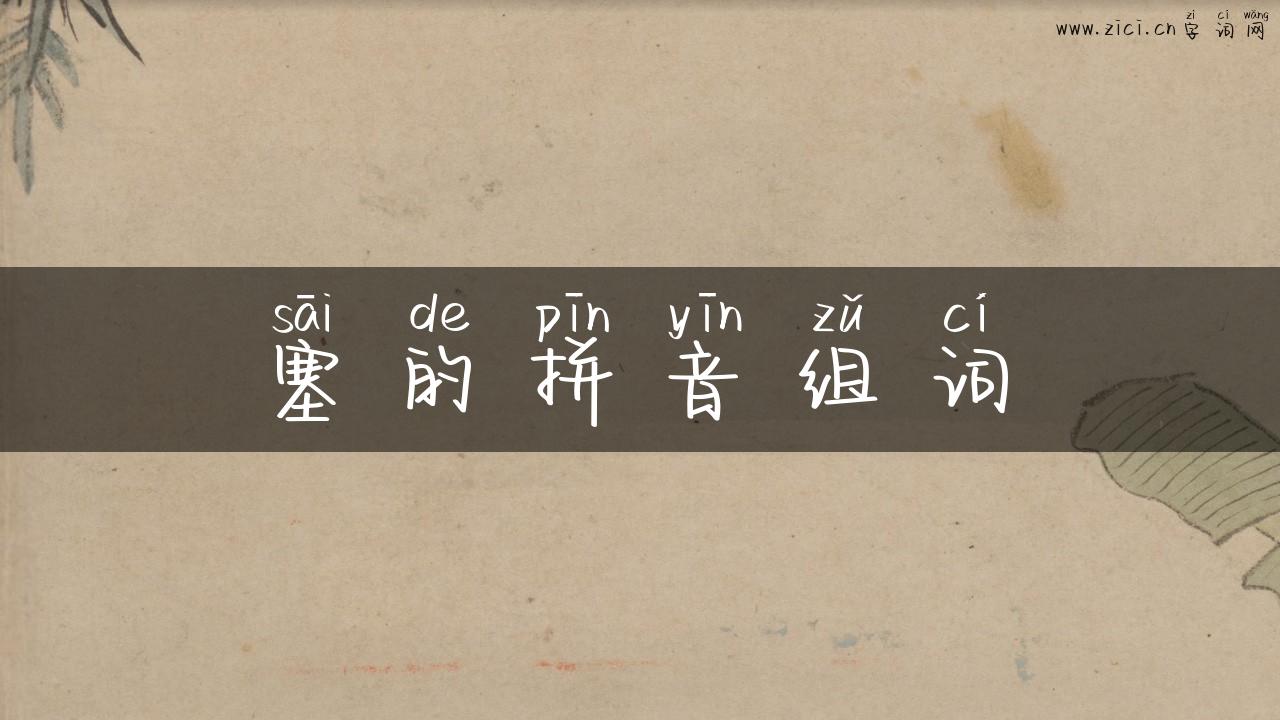 zì cí wǎng
www.zici.cn 字词网
sāi de pīn yīn zǔ cí
塞的拼音组词